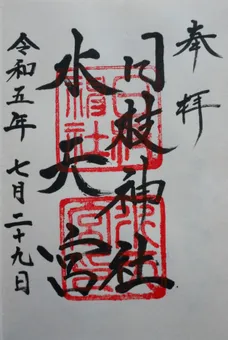 奉拝
日枝神社
水天宮
令和五年 七月二十九日